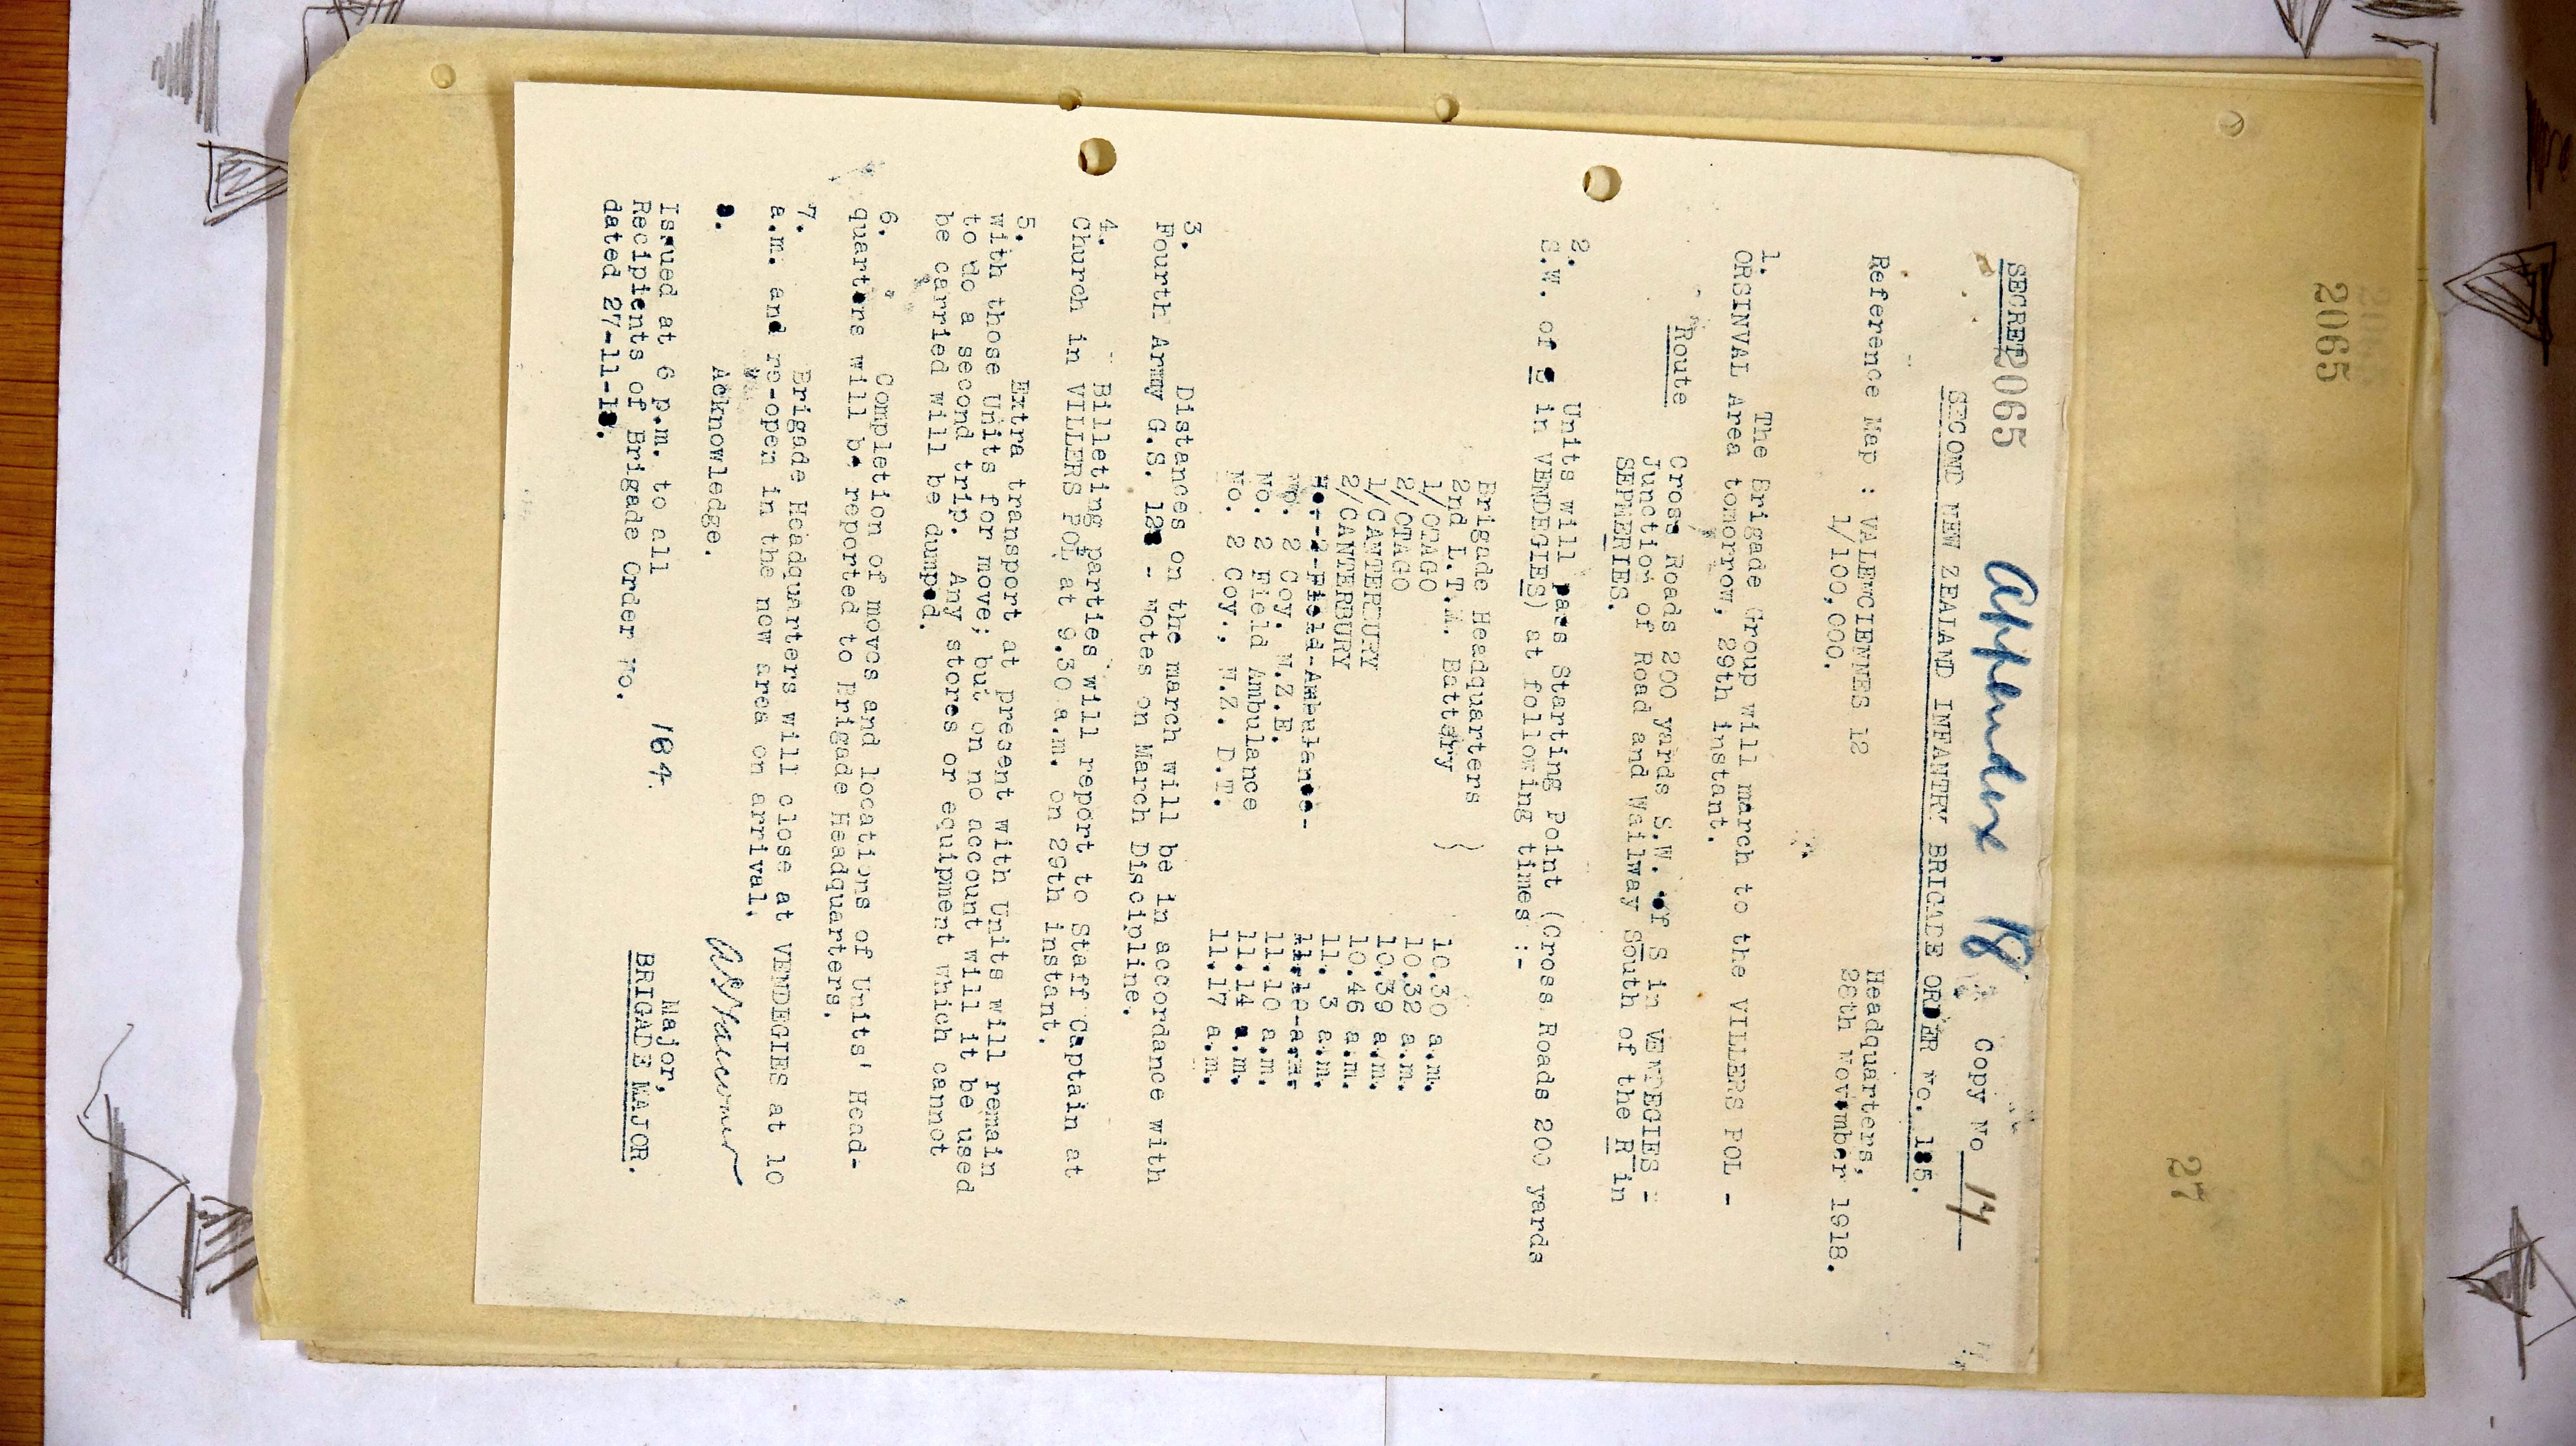 2065
27
Appendix 18
SECRET 2065
Copy No 14
SECOND NEW ZEALAND INFANTRY BRIGADE ORDER No. 185.
Headquarters,
28th November 1918.
Reference Map : VALENCIENNES 12
1/100,000.
1. The Brigade Group will march to the VILLERS POL -
ORSINVAL Area tomorrow, 29th instant.
Route Cross Roads 200 yards S.W. of S in VENDEGIES -
Junction of Road and Railway South of the R in
SEPMERIES.
2. Units will pass Starting Point (Cross Roads 200 yards
S.W. of S in VENDEGIES) at following times :-
Brigade Headquarters )
2nd L.T.M. Battery ) 10.30 a.m.
1/OTAGO 10.32 a.m.
2/OTAGO 10.39 a.m.
1/CANTERBURY 10.46 a.m.
2/CANTERBURY 11. 3 a.m.
No. 2 Field Ambulance 11.10 a.m.
No. 2 Coy. N.Z.E. 11.10 a.m.
No. 2 Field Ambulance 11.14 a.m.
No. 2 Coy., N.Z. D.T. 11.17 a.m.
3. Distances on the march will be in accordance with
Fourth Army G.S. - Notes on March Discipline.
4. Billeting parties will report to Staff Captain at
Church in VILLERS POL at 9.30 a.m. on 29th instant.
5. Extra transport at present with Units will remain
with those Units for move; but on no account will it be used
to do a second trip. Any stores or equipment which cannot
be carried will be dumped.
6. Completion of moves and locations of Units' Head-
quarters will be reported to Brigade Headquarters.
7. Brigade Headquarters will close at VENDEGIES at 10
a.m. and re-open in the new area on arrival.
8. Acknowledge.
Major,
BRIGADE MAJOR.
Issued at 6 p.m. to all
Recipients of Brigade Order No. 184
dated 27-11-18.